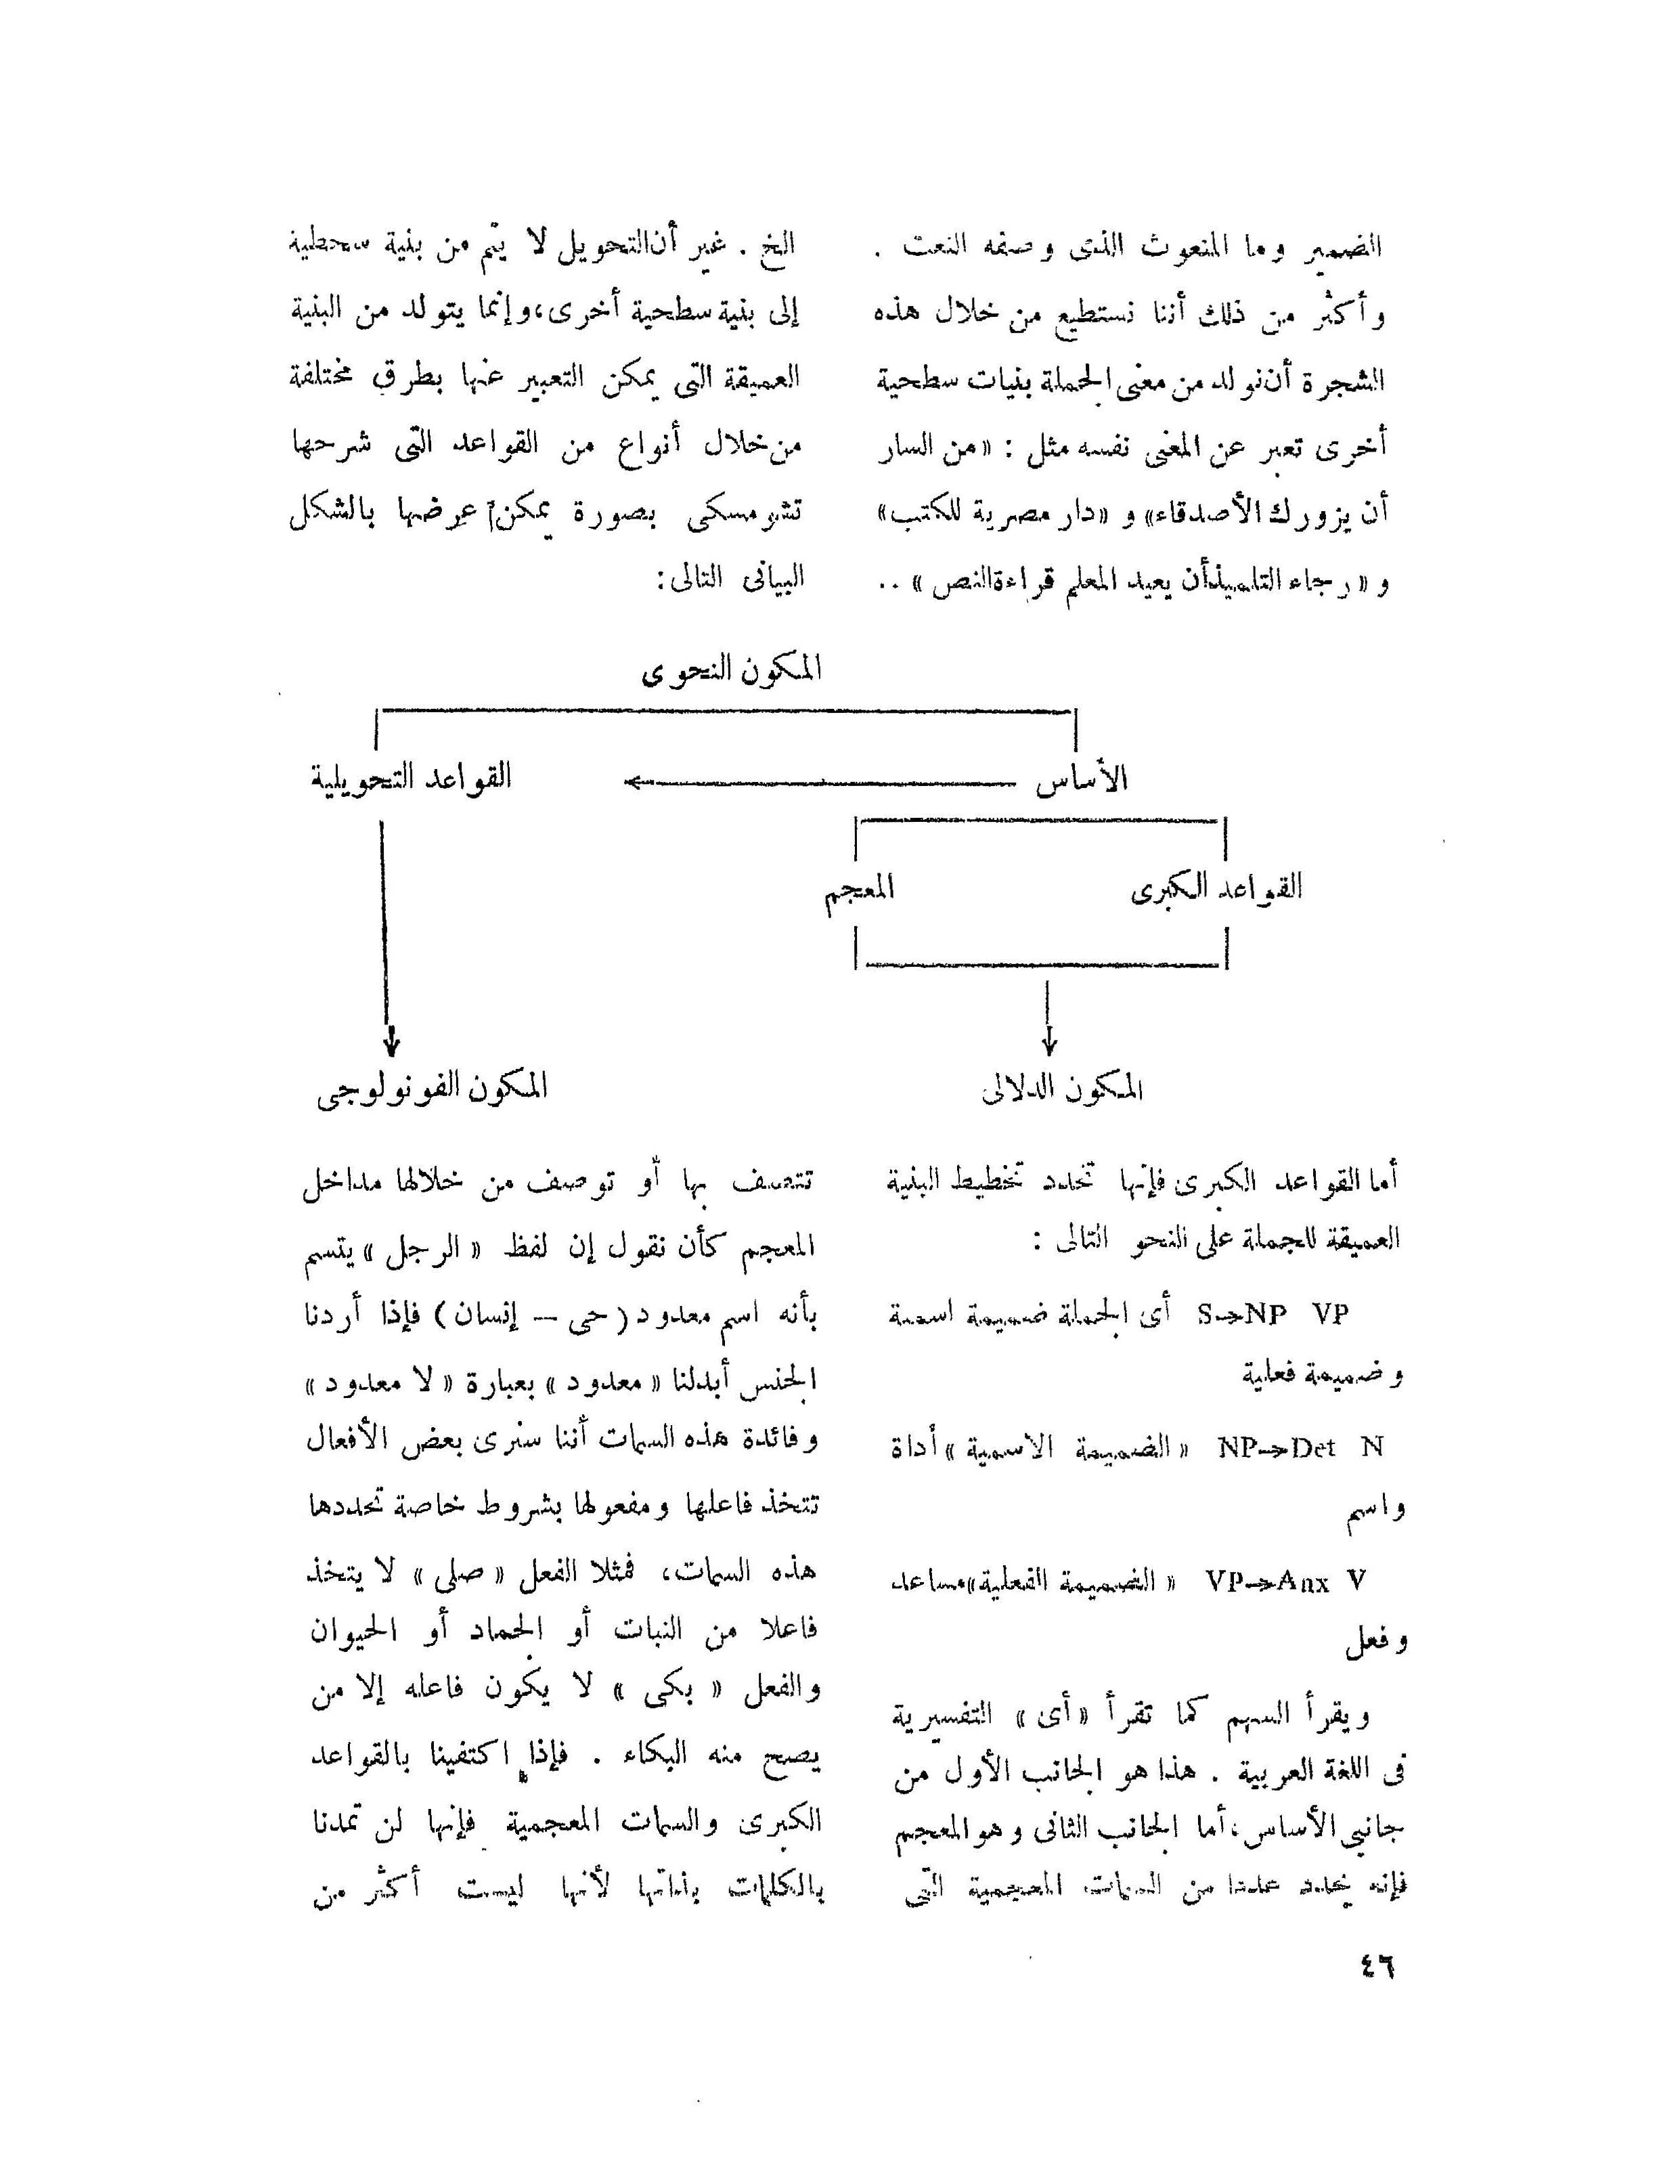 الضمير وما المنعوث الذى وصفه النعت .
وأكثر من ذلك أننا نستطيع من خلال هذه
الشجرة أن نولد من معنى الجملة بنيات سطحية
أخرى تعبر عن المعنى نفسه مثل : «من السار
أن يزورك الأصدقاء» و «دار مصرية للكتب»
و «رجاء التلميذ أن يعيد المعلم قراءة النص» ..
الخ . غير أن التحويل لا يتم من بنية سطحية
إلى بنية سطحية أخرى، وإنما يتولد من البنية
العميقة التى يمكن التعبير عنها بطرق مختلفة
من خلال أنواع من القواعد التى شرحها
تشومسكى بصورة يمكن عرضها بالشكل
البيانى التالى:
المكون النحوى
الأساس ← القواعد التحويلية
القواعد الكبرى المعجم
المكون الدلالى المكون الفونولوجى
أما القواعد الكبرى فإنها تحدد تخطيط البنية
العميقة للجملة على النحو التالى :
S→NP VP أى الجملة ضميمة اسمية
وضميمة فعلية
NP→Det N «الضميمة الاسمية» أداة
واسم
VP→Anx V «الضميمة الفعلية» مساعد
وفعل
ويقرأ السهم كما تقرأ «أى» التفسيرية
فى اللغة العربية . هذا هو الجانب الأول من
جانبى الأساس، أما الجانب الثانى وهو المعجم
فإنه يحدد عددا من السمات المعجمية التى
تتصف بها أو توصف من خلالها مداخل
المعجم كأن نقول إن لفظ «الرجل» يتسم
بأنه اسم معدود (حى – إنسان) فإذا أردنا
الجنس أبدلنا «معدود» بعبارة «لا معدود»
وفائدة هذه السمات أننا سنرى بعض الأفعال
تتخذ فاعلها ومفعولها بشروط خاصة تحددها
هذه السمات، فمثلا الفعل «صلى» لا يتخذ
فاعلا من النبات أو الجماد أو الحيوان
والفعل «بكى» لا يكون فاعله إلا من
يصح منه البكاء . فإذا اكتفينا بالقواعد
الكبرى والسمات المعجمية فإنها لن تمدنا
بالكلمات بذاتها لأنها ليست أكثر من
٤٦